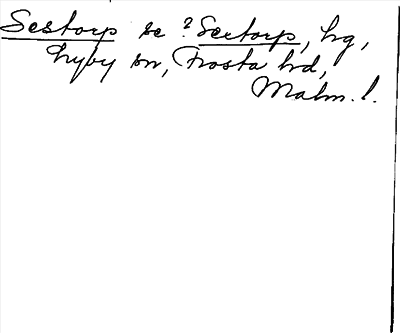 Sestorp se ? Sectorp, hg,
Lyby sn, Frosta hd,
Malm. l.